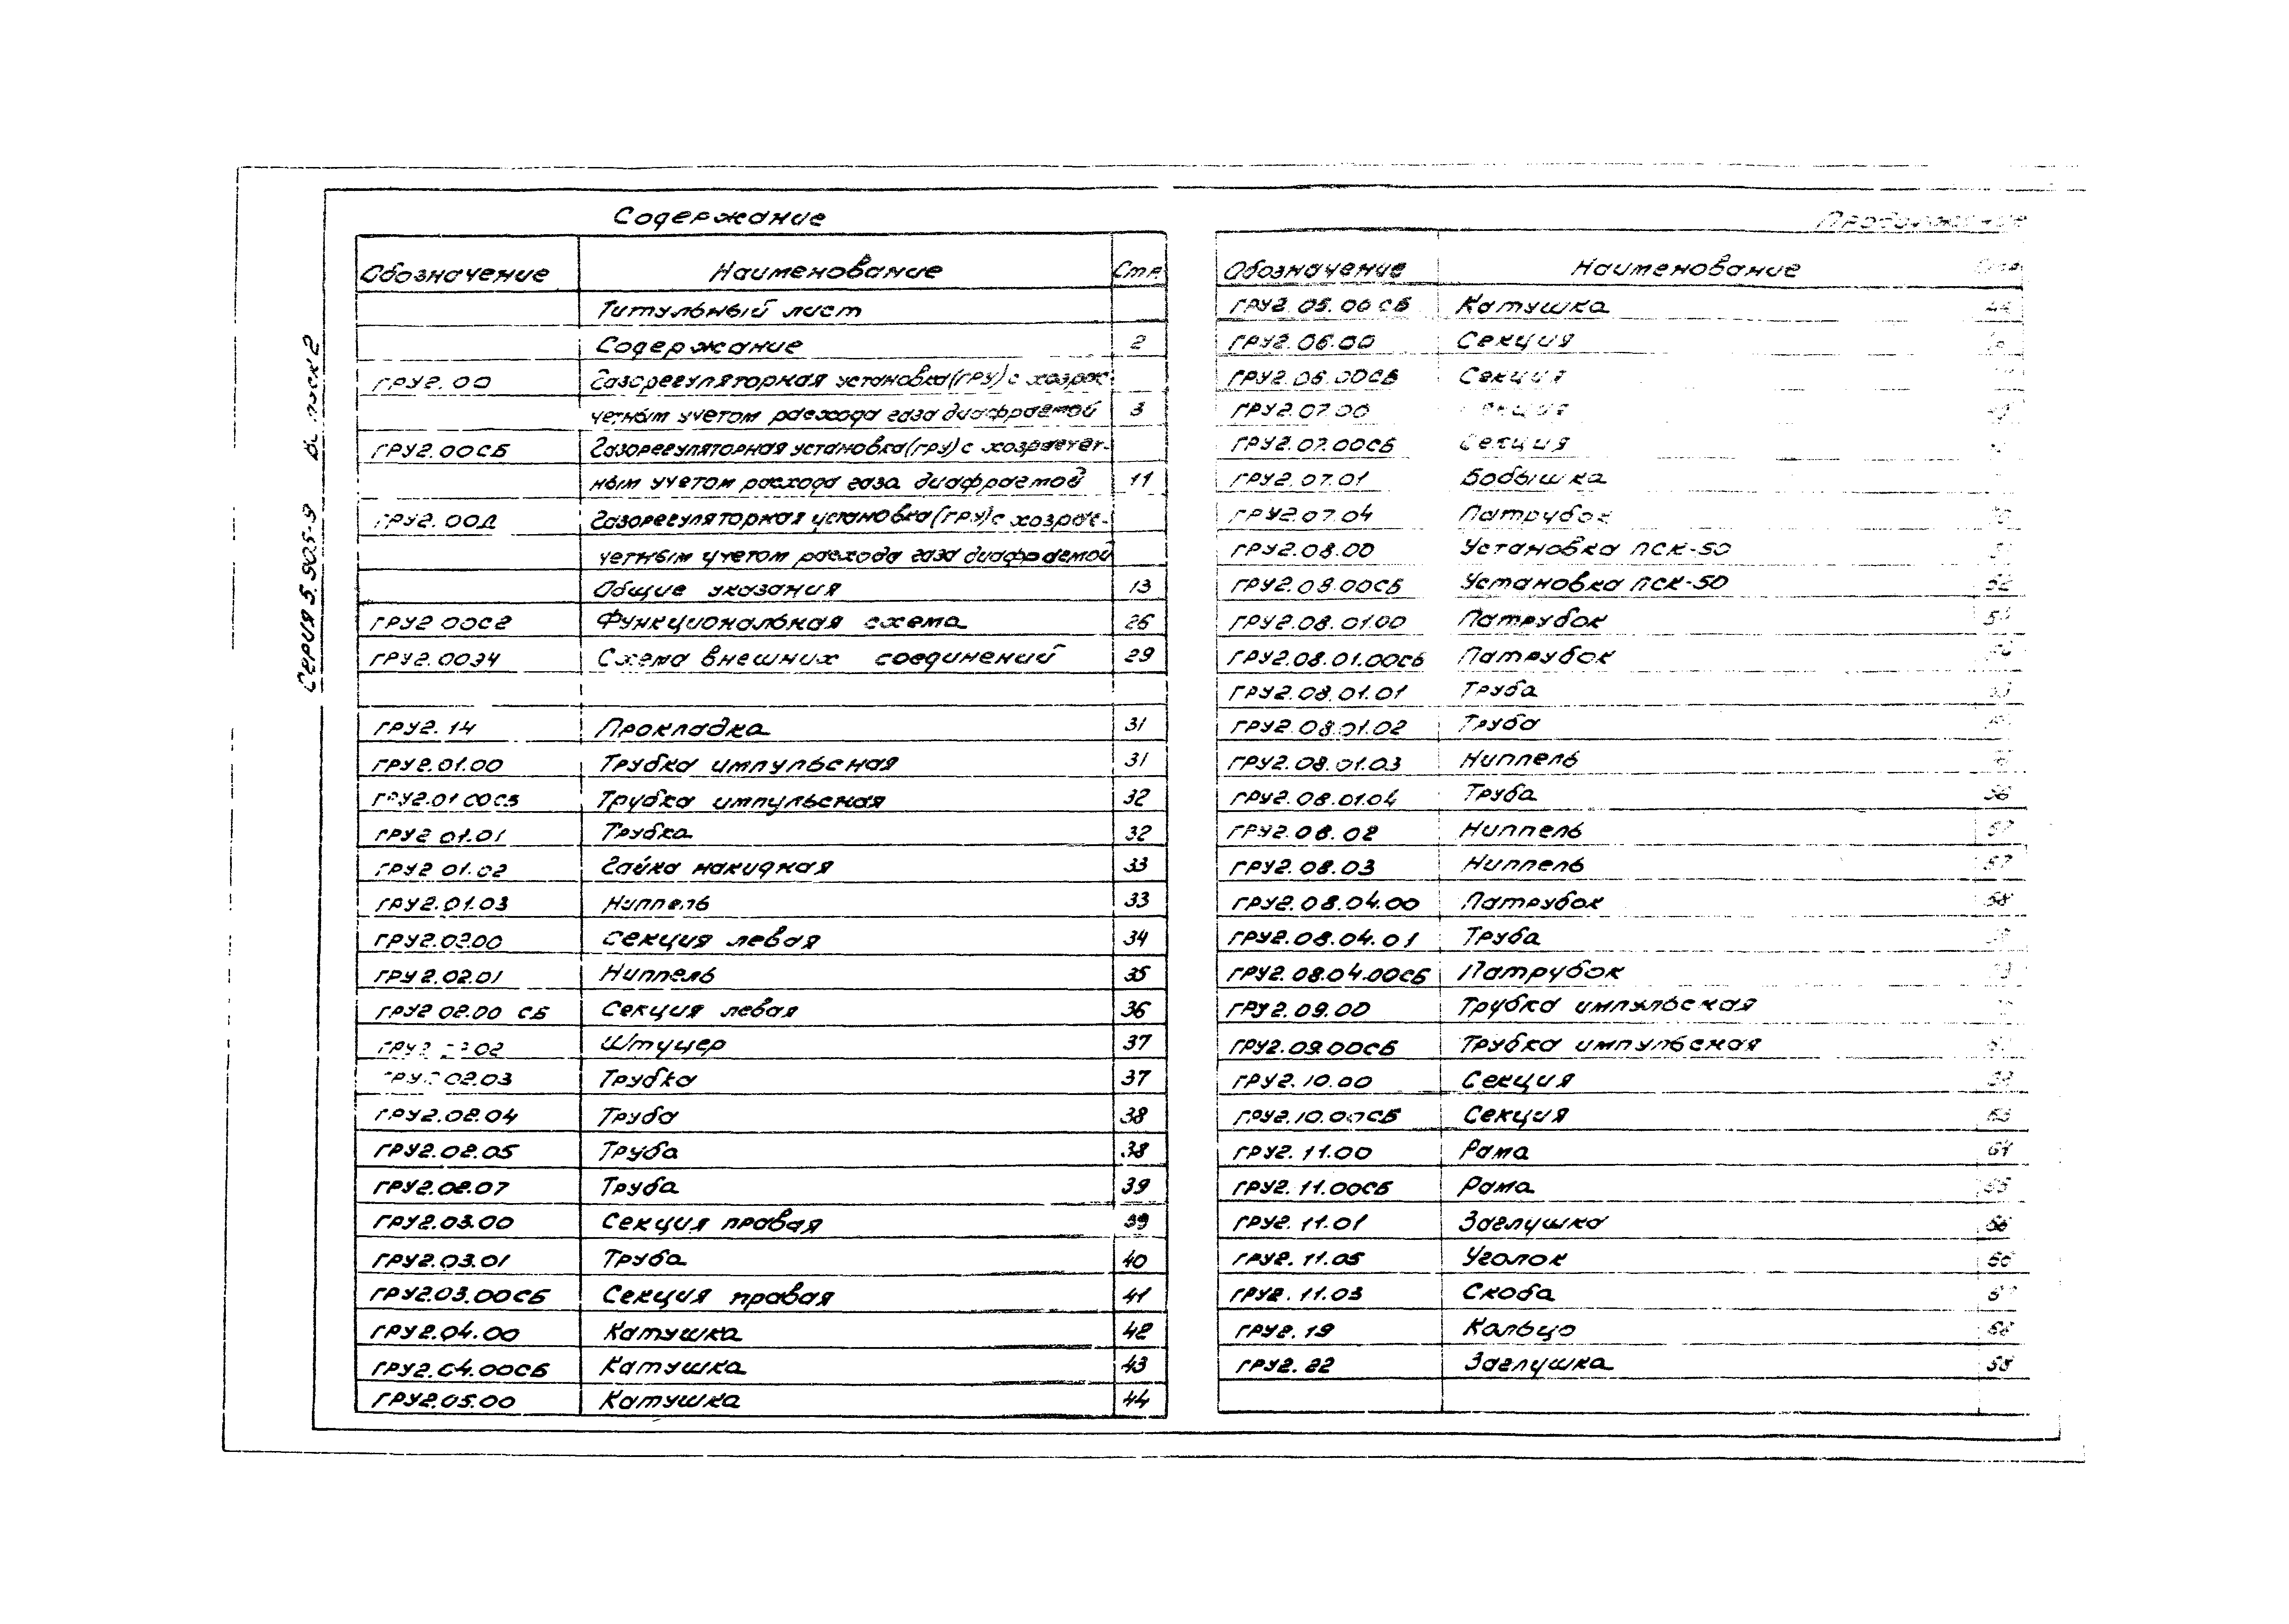 Серия 5.905-9
Содержание
Обозначение Наименование Стр.
Титульный лист
Содержание 2
ГРУ2.00 Газорегуляторная установка(ГРУ) с хозрас-
четным учетом расхода газа диафрагмой 3
ГРУ2.00СБ Газорегуляторная установка(ГРУ) с хозрасчет-
ным учетом расхода газа диафрагмой 11
ГРУ2.00Д Газорегуляторная установка(ГРУ)с хозрас-
четным учетом расхода газа диафрагмой
Общие указания 13
ГРУ2 00С2 Функциональная схема 26
ГРУ2.00Э4 Схема внешних соединений 29
ГРУ2.14 Прокладка 31
ГРУ2.01.00 Трубка импульсная 31
ГРУ2.01 00СБ Трубка импульсная 32
ГРУ2 01.01 Трубка 32
ГРУ2 01.02 Гайка накидная 33
ГРУ2.01.03 Ниппель 33
ГРУ2.02.00 Секция левая 34
ГРУ2.02.01 Ниппель 35
ГРУ2 02.00 СБ Секция левая 36
Штуцер 37
02.03 Трубка 37
ГРУ2.02.04 Труба 38
ГРУ2.02.05 Труба 38
ГРУ2.02.07 Труба 39
ГРУ2.03.00 Секция правая 39
ГРУ2.03.01 Труба 40
ГРУ2.03.00СБ Секция правая 41
ГРУ2.04.00 Катушка 42
ГРУ2.04.00СБ Катушка 43
ГРУ2.05.00 Катушка 44
Продолжение
Обозначение Наименование
ГРУ2.05.00 СБ Катушка
ГРУ2.06.00 Секция
ГРУ2.06.00СБ Секция
ГРУ2.07.00 Секция
ГРУ2.07.00СБ Секция
ГРУ2.07.01 Бобышка
ГРУ2.07.04 Патрубок
ГРУ2.08.00 Установка ПСК-50
ГРУ2.08.00СБ Установка ПСК-50 52
ГРУ2.08.01.00 Патрубок
ГРУ2.08.01.00СБ Патрубок
ГРУ2.08.01.01 Труба
ГРУ2.08.01.02 Труба
ГРУ2.08.01.03 Ниппель
ГРУ2.08.01.04 Труба 56
ГРУ2.08.02 Ниппель 57
ГРУ2.08.03 Ниппель 57
ГРУ2.08.04.00 Патрубок 58
ГРУ2.08.04.01 Труба
ГРУ2.08.04.00СБ Патрубок
ГРУ2.09.00 Трубка импульсная
ГРУ2.09.00СБ Трубка импульсная
ГРУ2.10.00 Секция
ГРУ2.10.00СБ Секция 63
ГРУ2.11.00 Рама 64
ГРУ2.11.00СБ Рама 65
ГРУ2.11.01 Заглушка 66
ГРУ2.11.05 Уголок 66
ГРУ2.11.03 Скоба
ГРУ2.19 Кольцо 68
ГРУ2.22 Заглушка